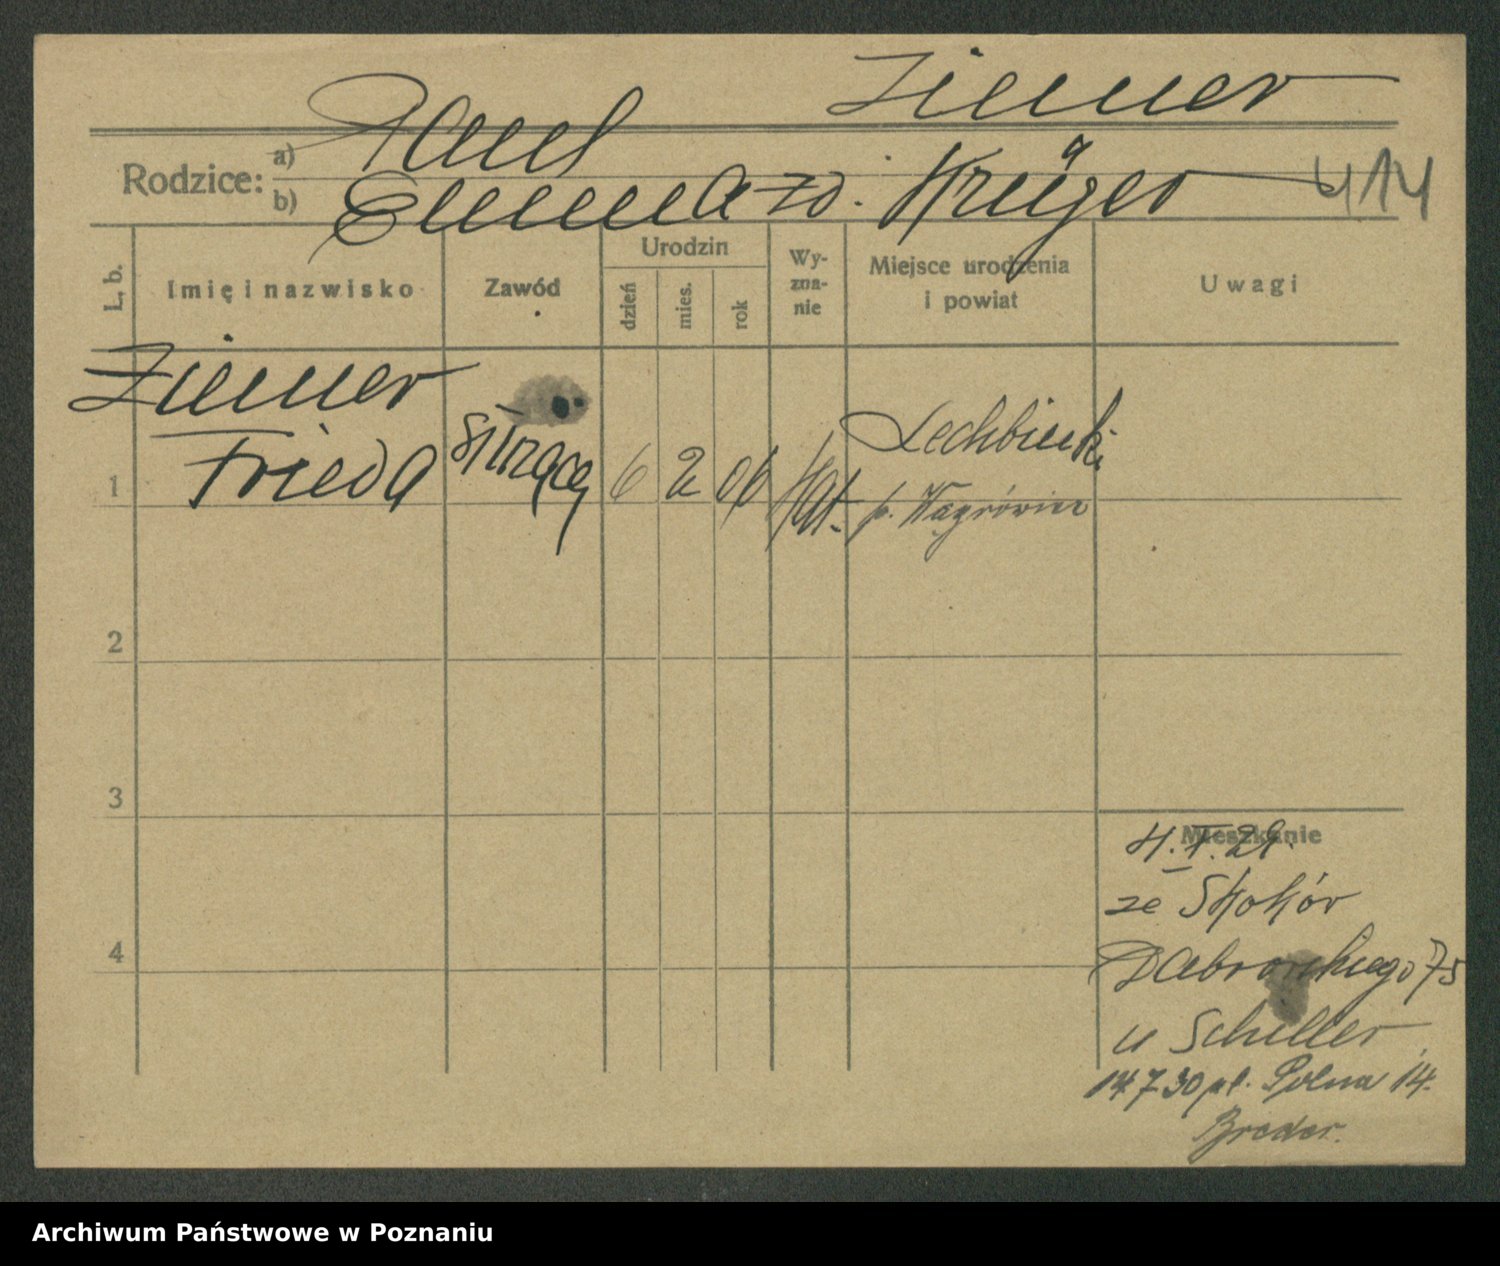 Ziemer
Rodzice: a) Paul
b) Emma zd. Krüger 414
L. b. Imię i nazwisko Zawód Urodzin dzień mies. rok Wyznanie Miejsce urodzenia i powiat Uwagi
Ziemer
1 Frieda służący 6 2 06 kat.
p. Wągrówiec
2
3
Mieszkanie
4
ze Skoków
Dąbrowskiego 75
u Scheller
14 7 30 pl. Polna 14.
Archiwum Państwowe w Poznaniu